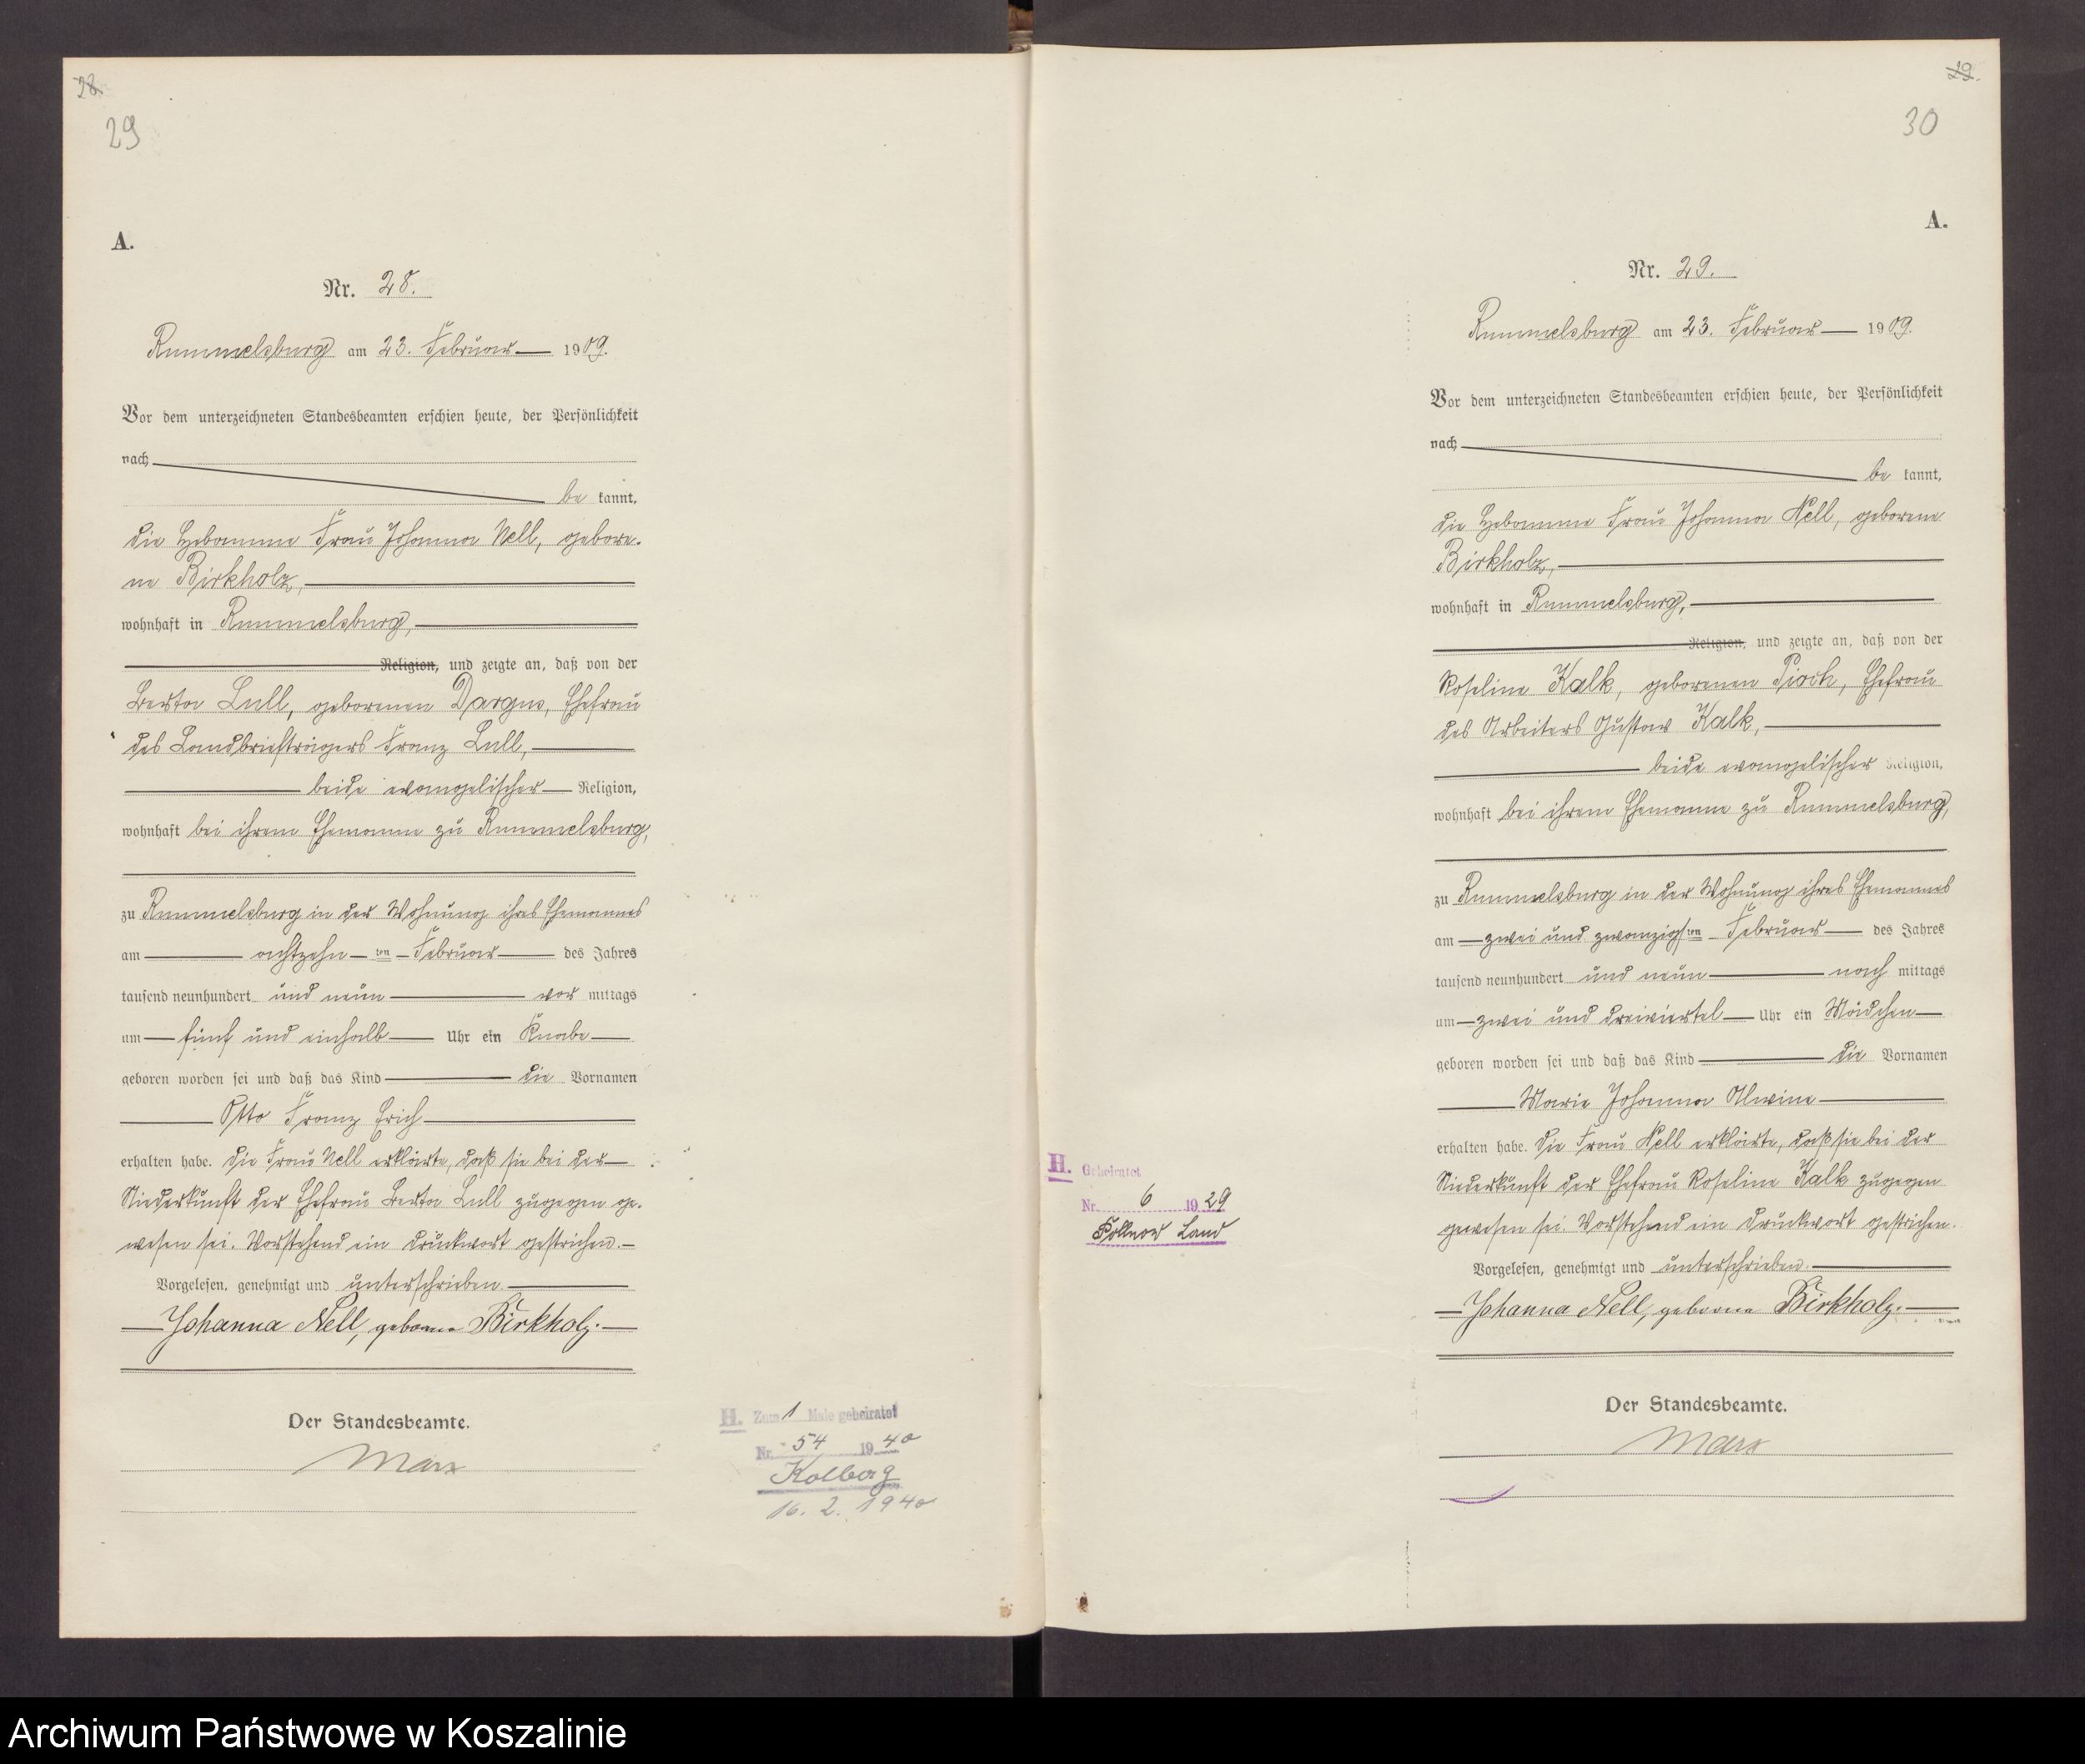 28.
29
A.
Nr. 28.
Rummelsburg am 23. Februar 1909.
Vor dem unterzeichneten Standesbeamten erschien heute, der Persönlichkeit
nach
be kannt,
die Hebamme Frau Johanna Nell, gebore-
ne Birkholz,
wohnhaft in Rummelsburg,
Religion, und zeigte an, daß von der
Berta Lull, geborenen Dargus, Ehefrau
des Landbriefträgers Franz Lull,
beide evangelischer Religion,
wohnhaft bei ihrem Ehemanne zu Rummelsburg,
zu Rummelsburg in der Wohnung ihres Ehemannes
am achtzehn ten Februar des Jahres
tausend neunhundert und neun vor mittags
um fünf und einhalb Uhr ein Knabe
geboren worden sei und daß das Kind die Vornamen
Otto Franz Erich
erhalten habe. Die Frau Nell erklärte, daß sie bei der
Niederkunft der Ehefrau Berta Lull zugegen ge-
wesen sei. Vorstehend ein Druckwort gestrichen.
Vorgelesen, genehmigt und unterschrieben
Johanna Nell, geborene Birkholz.
Der Standesbeamte.
Marx
H. Zum 1 Male geheiratet
Nr. 54 1940
Kolberg
16. 2. 1940
29.
30
A.
Nr. 29.
Rummelsburg am 23. Februar 1909.
Vor dem unterzeichneten Standesbeamten erschien heute, der Persönlichkeit
nach
be kannt,
die Hebamme Frau Johanna Nell, geborene
Birkholz,
wohnhaft in Rummelsburg,
Religion, und zeigte an, daß von der
Roseline Kalk, geborenen Pioch, Ehefrau
des Arbeiters Gustav Kalk,
beide evangelischer Religion,
wohnhaft bei ihrem Ehemanne zu Rummelsburg,
zu Rummelsburg in der Wohnung ihres Ehemannes
am zwei und zwanzigsten Februar des Jahres
tausend neunhundert und neun nach mittags
um zwei und dreiviertel Uhr ein Mädchen
geboren worden sei und daß das Kind die Vornamen
Marie Johanna Alwine
erhalten habe. Die Frau Nell erklärte, daß sie bei der
Niederkunft der Ehefrau Roseline Kalk zugegen
gewesen sei. Vorstehend ein Druckwort gestrichen.
Vorgelesen, genehmigt und unterschrieben.
Johanna Nell, geborene Birkholz.
Der Standesbeamte.
Marx
H. Geheiratet
Nr. 6 1929
Gollnow Land
Archiwum Państwowe w Koszalinie